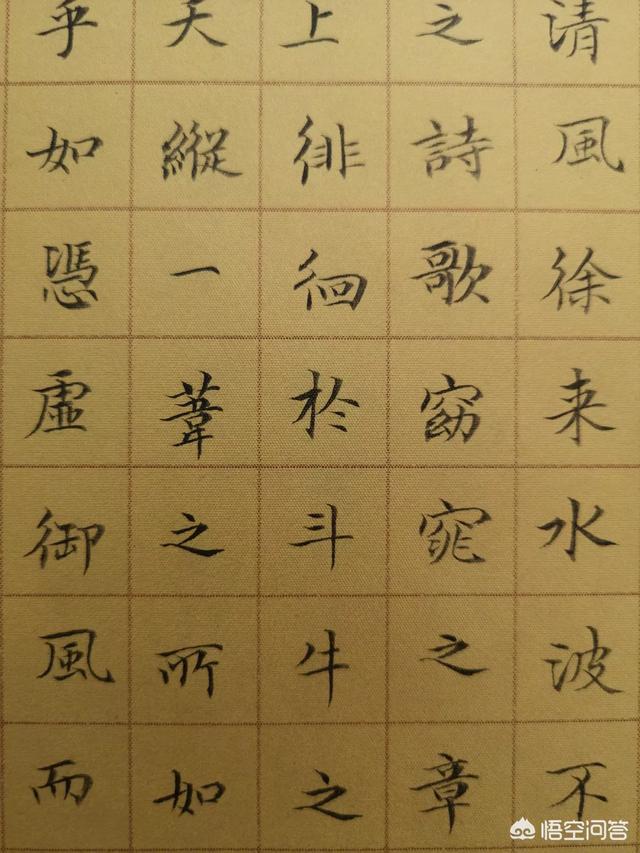 清風徐来水波不
之詩歌窈窕之章
上徘徊於斗牛之
天縱一葦之所如
乎如憑虛御風而
悟空问答